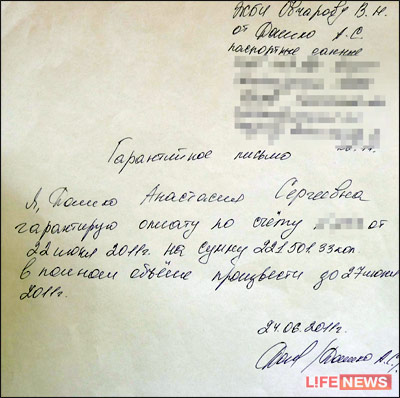 Овчарову В. Н.
от Дашко А.С.
паспортные данные
Гарантийное письмо
Я, Дашко Анастасия Сергеевна
гарантирую оплату по счёту от
22 июня 2011г. на сумму 221.501.33 коп.
в полном объёме произвести до 27 июня
2011г.
24.06.2011г.
/Дашко А.С./
LIFE NEWS